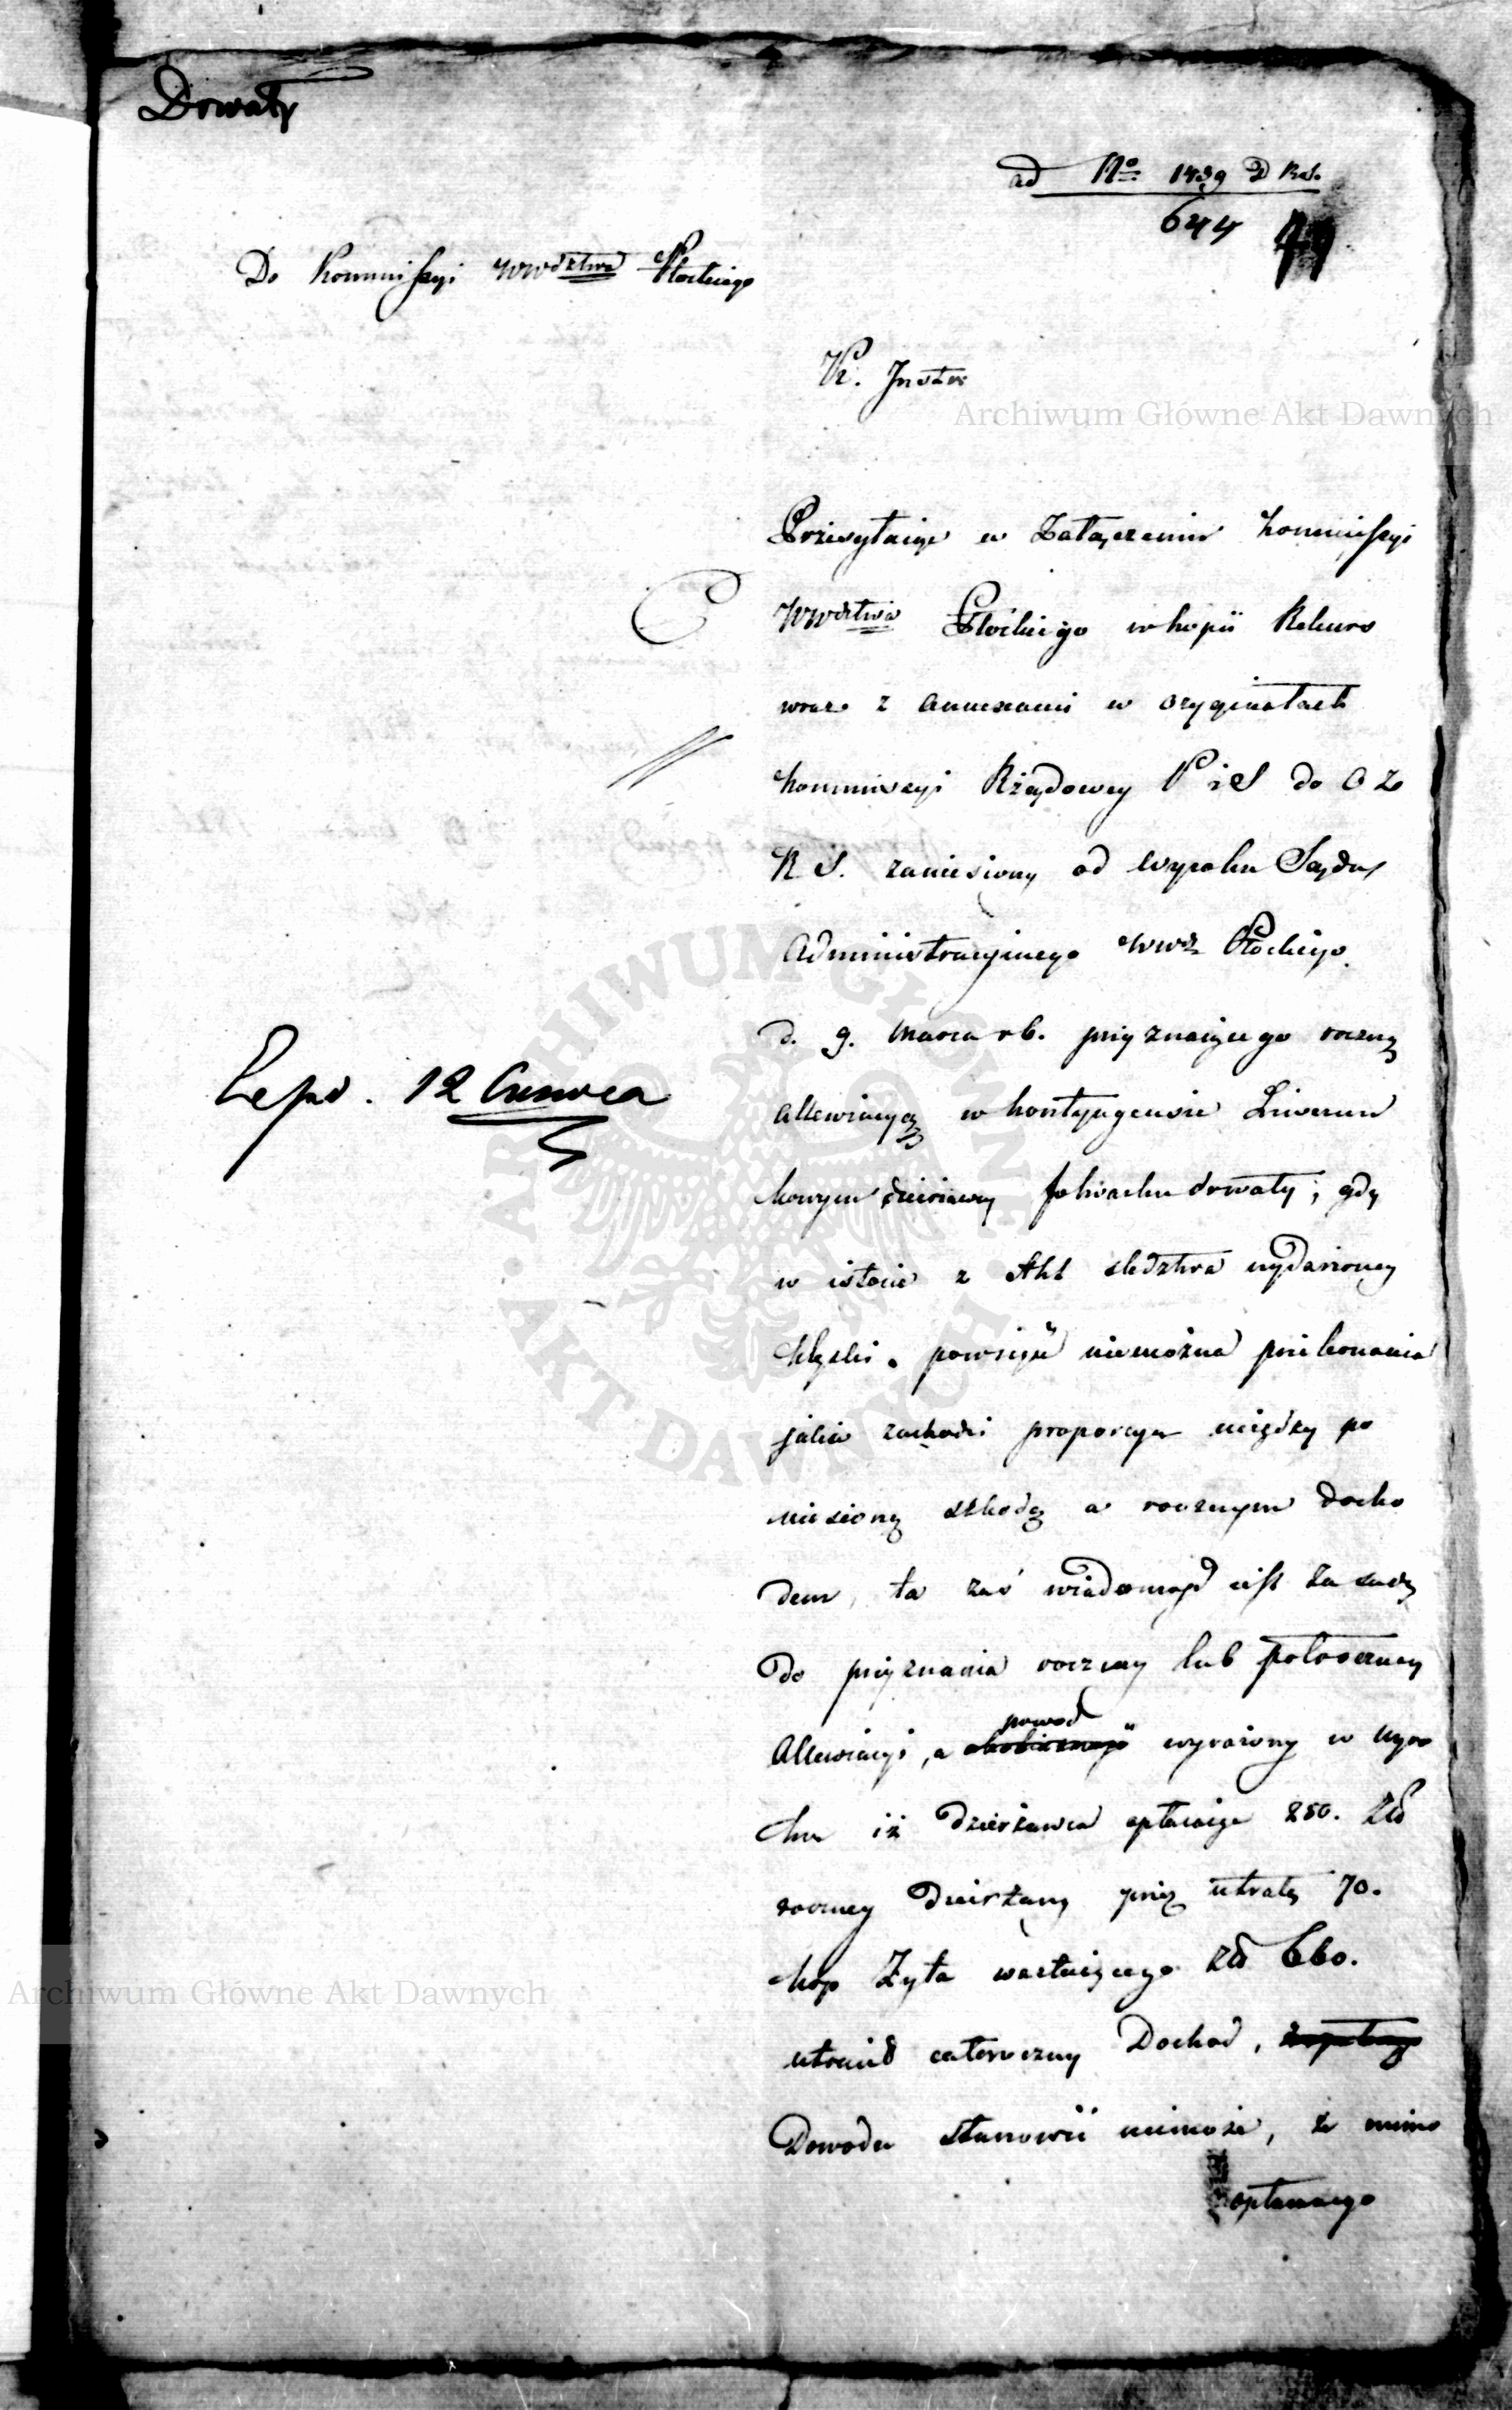 Drwały
ad No 1439 D R.S.
644
Do Kommissyi Wwdztwa Płockiego
Archiwum Główne Akt Dawnych
Przesyłaiąc w Załączeniu Kommissyi
Wwdztwa Płockiego w kopii Rekurs
wraz z annexami w oryginałach
Kommissyi Rządowey P i S do O Z
R S. zaniesiony od wyroku Sądu
Administracyinego Wwdz Płockiego
d. 9. Marca rb. przyznaiącego roczną
allewiacyą w kontyngensie Liwerun
kowym dzierżawcy folwarku Drwały, gdy
w istocie z Akt śledztwa wydarzoney
klęski powziąść niemożna przekonania
jaka zachodzi proporcya między po
niesioną szkodą a rocznym docho
dem, ta zaś wiadomość iest zasadą
do przyznania roczney lub półroczney
Allewiacyi, a powod wyrażony w wyro
ku iż dzierżawca opłacaiąc 250. Zł
roczney dzierżawy przez utratę 70.
kop Żyta wartuiącego Zł 660.
utracił całoroczny Dochod,
Dowodu stanowić niemoże, że mimo
opłacanego
Exped. 12 Czerwca
ARCHIWUM GŁÓWNE AKT DAWNYCH
Archiwum Główne Akt Dawnych